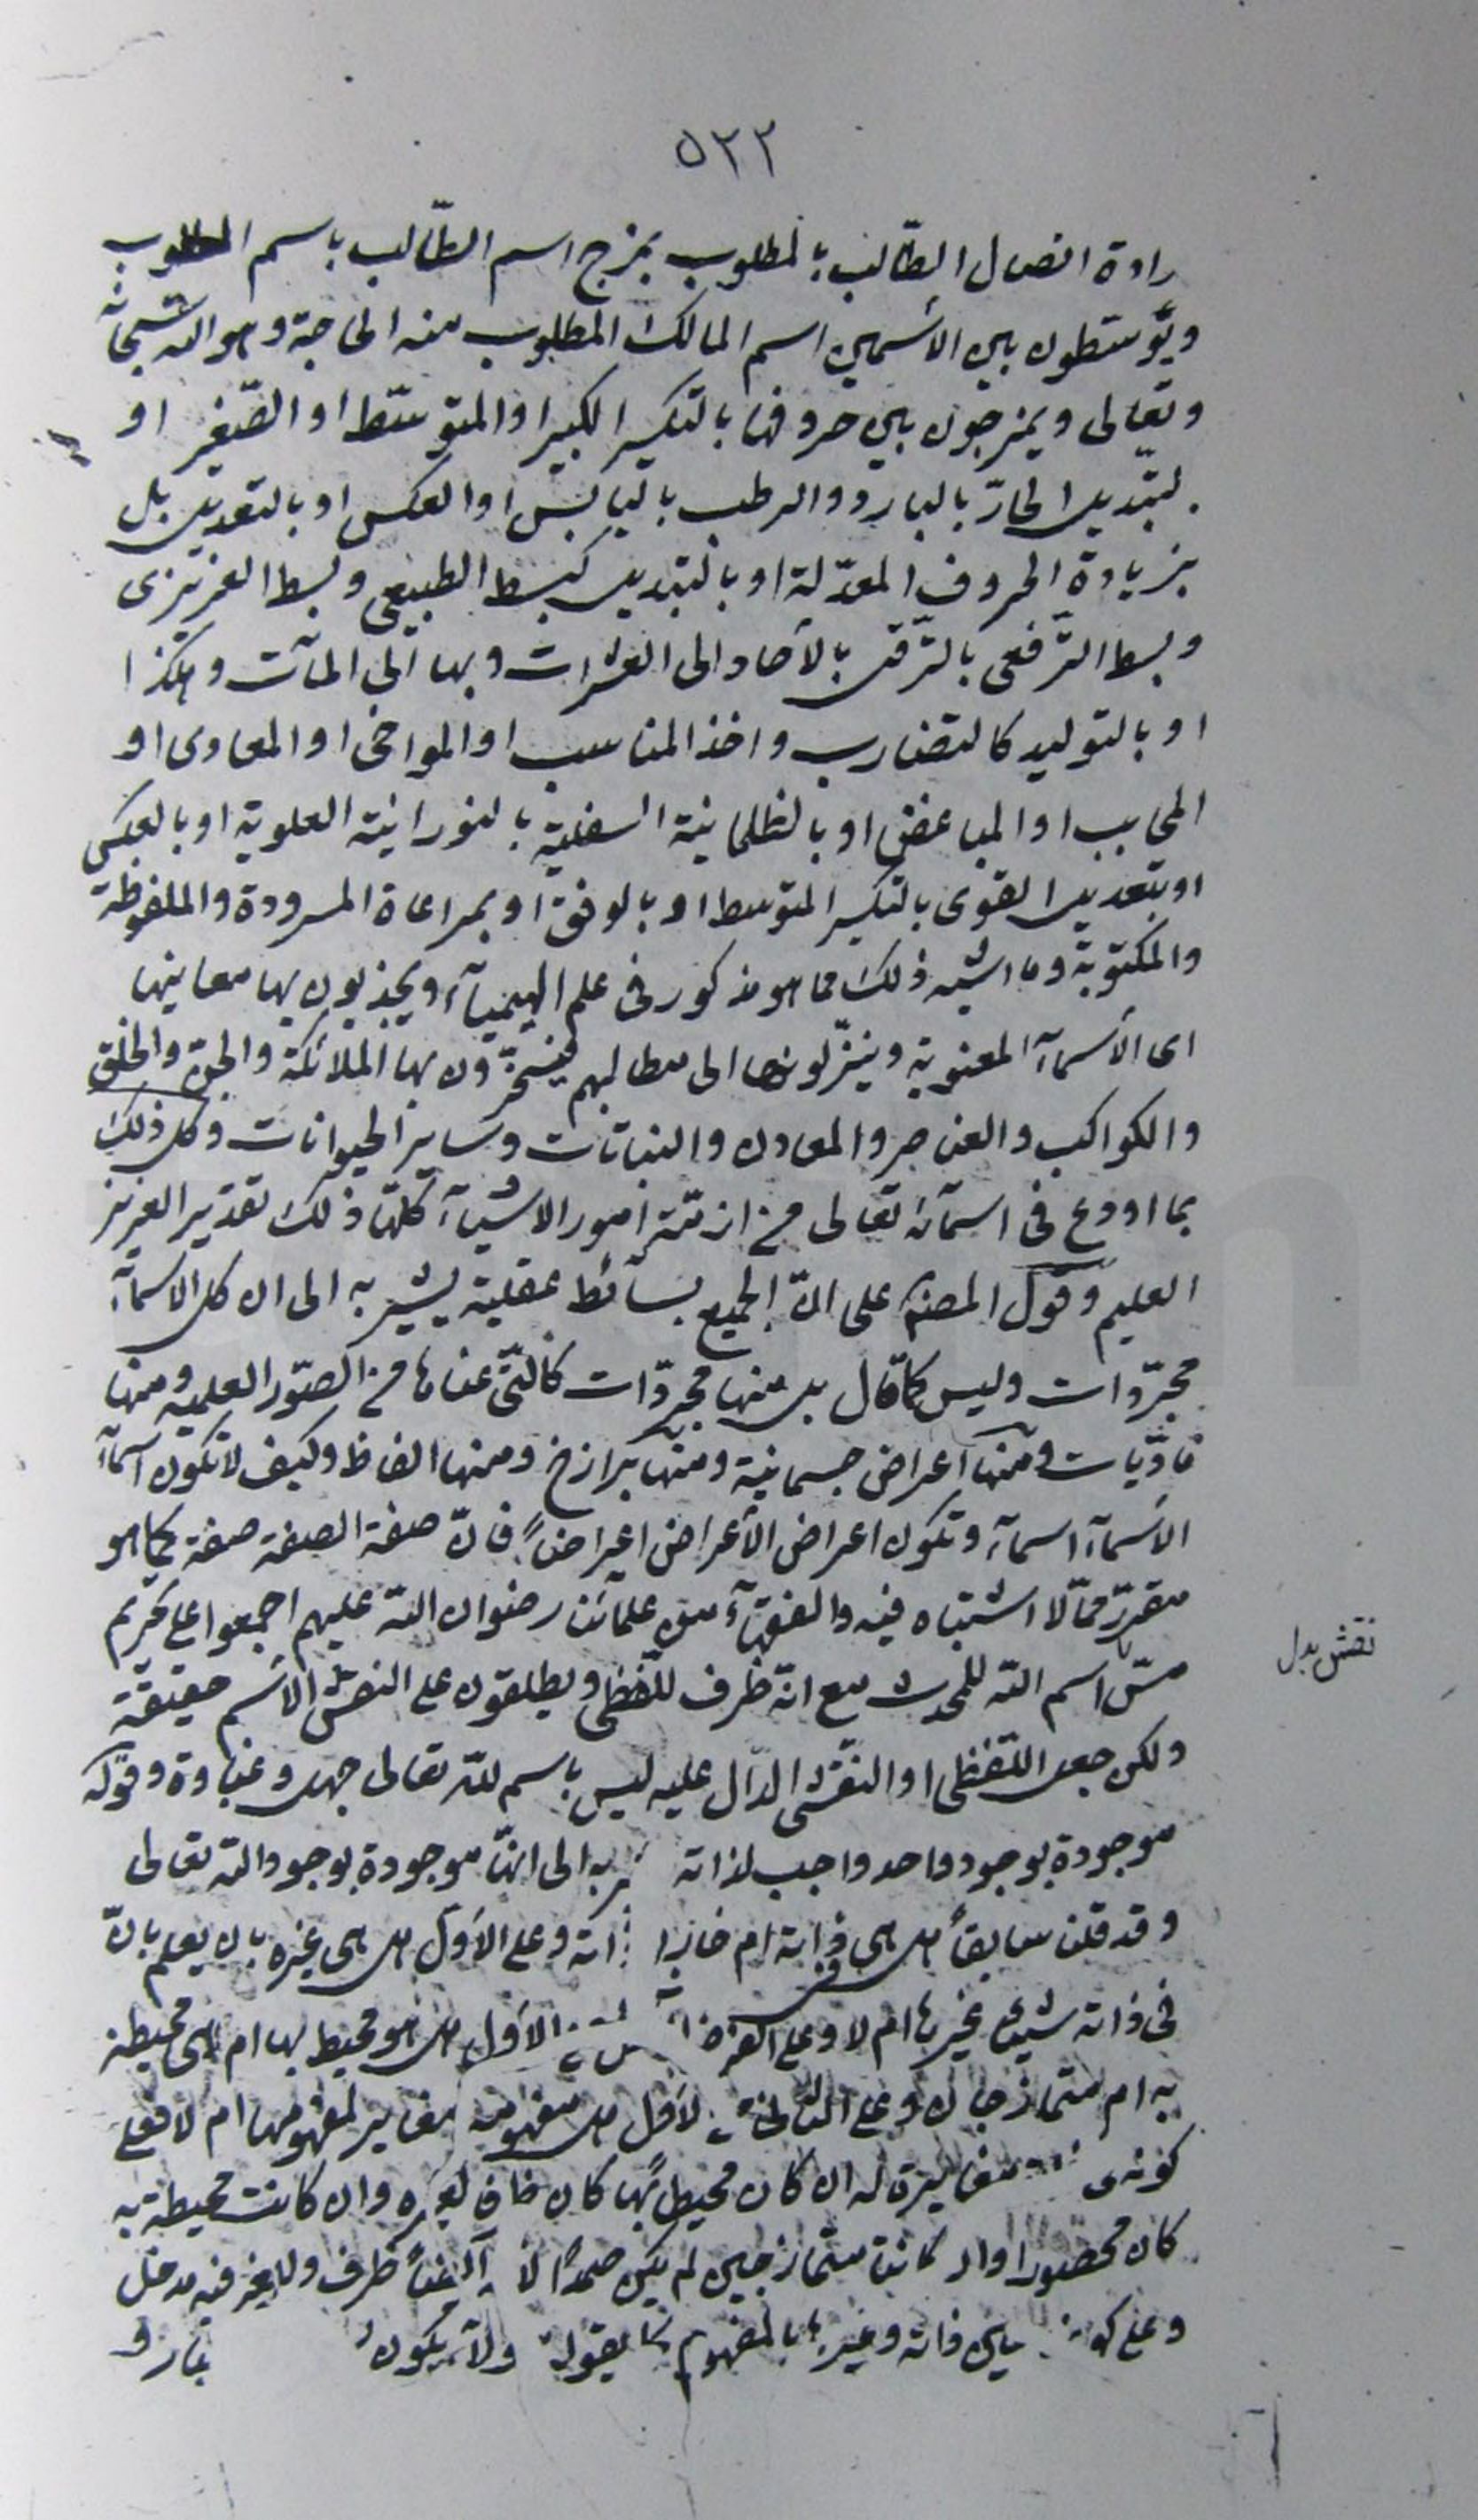 ٥٢٢
رادة اتصال الطّالب بالمطلوب بمزج اسم الطّالب باسم المطلوب
ويوسّطون بين الأسمين اسم المالك المطلوب منه الحاجة وهو الله سبحانه
وتعالى ويمزجون بين حروفها بالتكسير الكبير او المتوسّط او الصّغير او
بتبديل الحارّ بالبارد والرطب باليابس او العكس او بالتعديل بل
بزيادة الحروف المعدّلة او بالتبديل كبسط الطبيعي وبسط الغريزى
وبسط التّرفعى بالترّقى بالأحاد الى العشرات وبها الى المآت وهكذا
او بالتوليد كالتضارب واخذ المناسب او المواخى او المعادى او
المحابب او المباغض او بالظلمانية السفلية بالنورانية العلوية او بالعكس
او بتعديل القوى بالتكسير المتوسط او بالوفق او بمراعاة المسرودة والملفوظة
والمكتوبة وما اشبه ذلك مما هو مذكور فى علم الهيميآء ويجذبون بها معانيها
اى الأسمآء المعنوية وينزّلونها الى مطالبهم فيسخّرون بها الملائكة والجن والخلق
والكواكب والعناصر والمعادن والنباتات وساير الحيوانات وكل ذلك
بما اودع فى اسمآئه تعالى من ازمّة امور الاشيآء كلّها ذلك تقدير العزيز
العليم وقول المصنف على انّ الجميع بسائط عقلية يشير به الى ان كل الاسمآء
مجرّدات وليس كما قال بل منها مجردّات كالّتى عناها من الصّور العلمية ومنها
مادّيات ومنها اعراض جسمانية ومنها برازخ ومنها الفاظ وكيف لا تكون اسمآء
الأسمآء اسمآء وتكون اعراض الأعراض اعراضاً فانّ صفة الصفة صفة كما هو
مقرّر ممّا لا اشتباه فيه والفقهآء من علمآئنا رضوان الله عليهم اجمعوا على تحريم
مسّ اسم الله للمحدث مع انّه ظرف للّفظى ويطلقون على النقش الأسم حقيقة
نقش بدل
ولكن جعل اللّفظى او النقشى الدّال عليه ليس باسم لله تعالى جهل وغباوة وقوله
موجودة بوجود واحد واجب لذاته به الى انّها موجودة بوجود الله تعالى
وقد قلنا سابقاً هل هى ذاته ام وعلى الأوّل هل هى غيره بان يعلم بانّ
فى ذاته شيئا غيرها ام لا وعلى الأوّل هل هو محيط بها ام هى محيطة
به ام متمازجان وعلى الثانى هل مفهومه مغاير لمفهومها ام لا فعلى
مغايرة له ان كان محيطاً بها كان ظرفا لغيره وان كانت محيطة به
كان محصورا وان كانتا متمازجين لم يكن صمداً ظرف ولغيره فيه مدخل
وعلى بين ذاته وغيره بالمفهوم كما يقوله ولا يكون